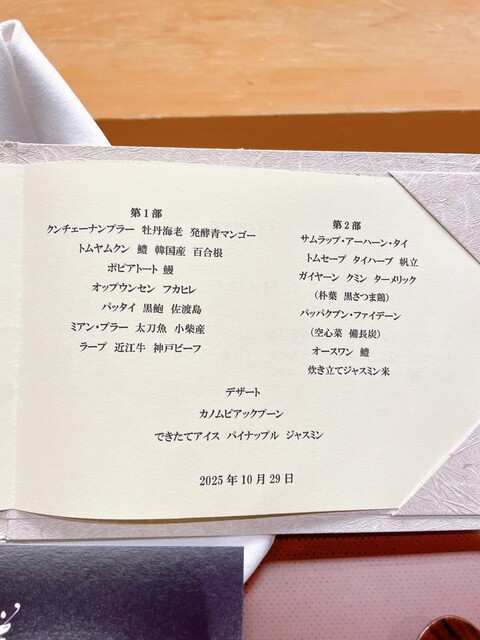 第1部
クンチェーナンプラー 牡丹海老 発酵青マンゴー
トムヤムクン 鱧 韓国産 百合根
ポピアトート 鰻
オップウンセン フカヒレ
パッタイ 黒鮑 佐渡島
ミアン・プラー 太刀魚 小柴産
ラープ 近江牛 神戸ビーフ
第2部
サムラップ・アーハーン・タイ
トムセープ タイハーブ 帆立
ガイヤーン クミン ターメリック
(朴葉 黒さつま鶏)
パッパクブン・ファイデーン
(空心菜 備長炭)
オースワン 鱧
炊き立てジャスミン米
デザート
カノムピアックプーン
できたてアイス パイナップル ジャスミン
2025年10月29日